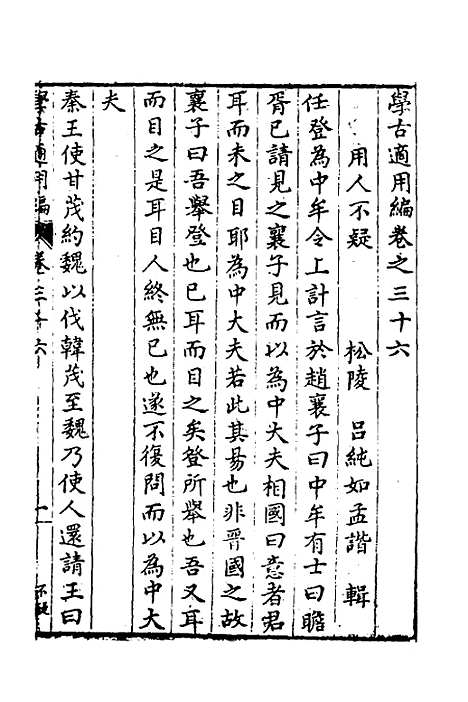 學古適用編卷之三十六
用人不疑 松陵 呂純如孟諧 輯
任登為中牟令上計言於趙襄子曰中牟有士曰瞻
胥已請見之襄子見而以為中大夫相國曰意者君
耳而未之目耶為中大夫若此其易也非晉國之故
襄子曰吾舉登也已耳而目之矣登所舉也吾又耳
而目之是耳目人終無已也遂不復問而以為中大
夫
秦王使甘茂約魏以伐韓茂至魏乃使人還請王曰
學古適用編 卷三十六 一 不疑